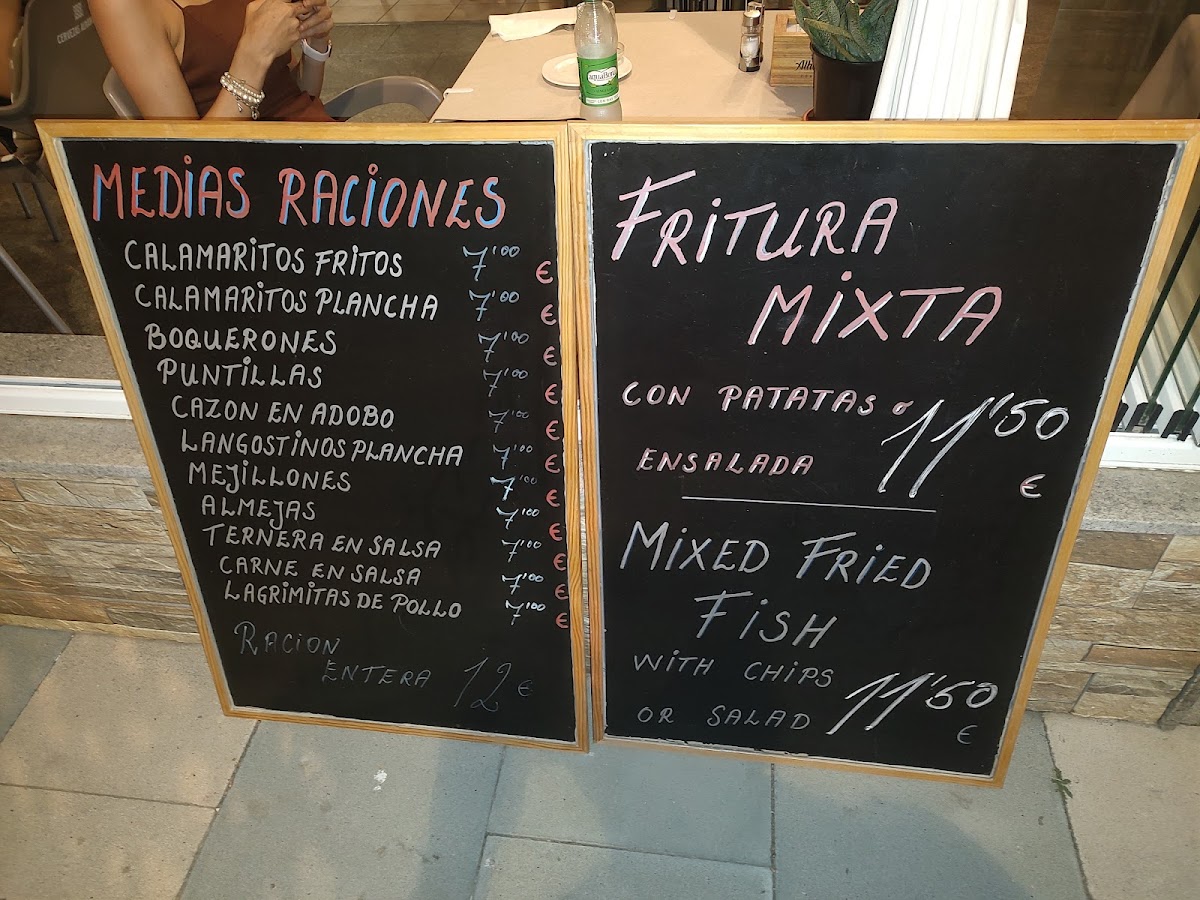 MEDIAS RACIONES
CALAMARITOS FRITOS 7'00 €
CALAMARITOS PLANCHA 7'00 €
BOQUERONES 7'00 €
PUNTILLAS 7'00 €
CAZON EN ADOBO 7'00 €
LANGOSTINOS PLANCHA 7'00 €
MEJILLONES 7'00 €
ALMEJAS 7'00 €
TERNERA EN SALSA 7'00 €
CARNE EN SALSA 7'00 €
LAGRIMITAS DE POLLO 7'00 €
RACION
ENTERA 12 €
FRITURA
MIXTA
CON PATATAS o 11'50
ENSALADA €
MIXED FRIED
FISH
WITH CHIPS 11'50
OR SALAD €